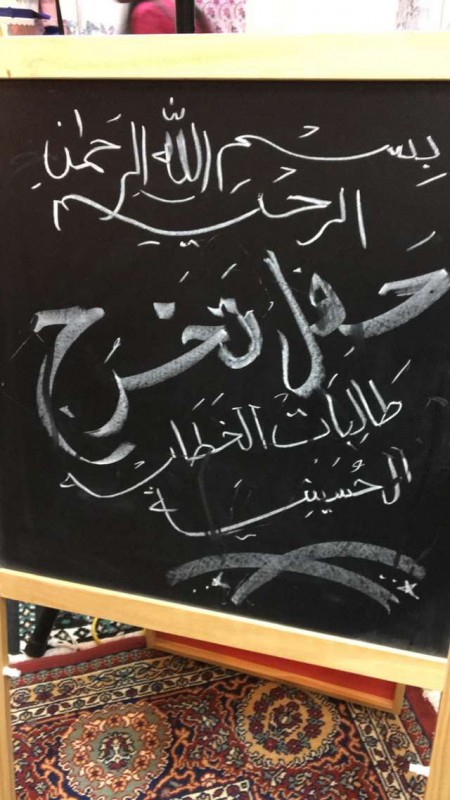 بِسْمِ اللّٰهِ الرَحَمٰنِ
الرحيم
حَفل تَخَرُج
طَالِبَاتْ الخَطَابه
الحُسَينِيَة